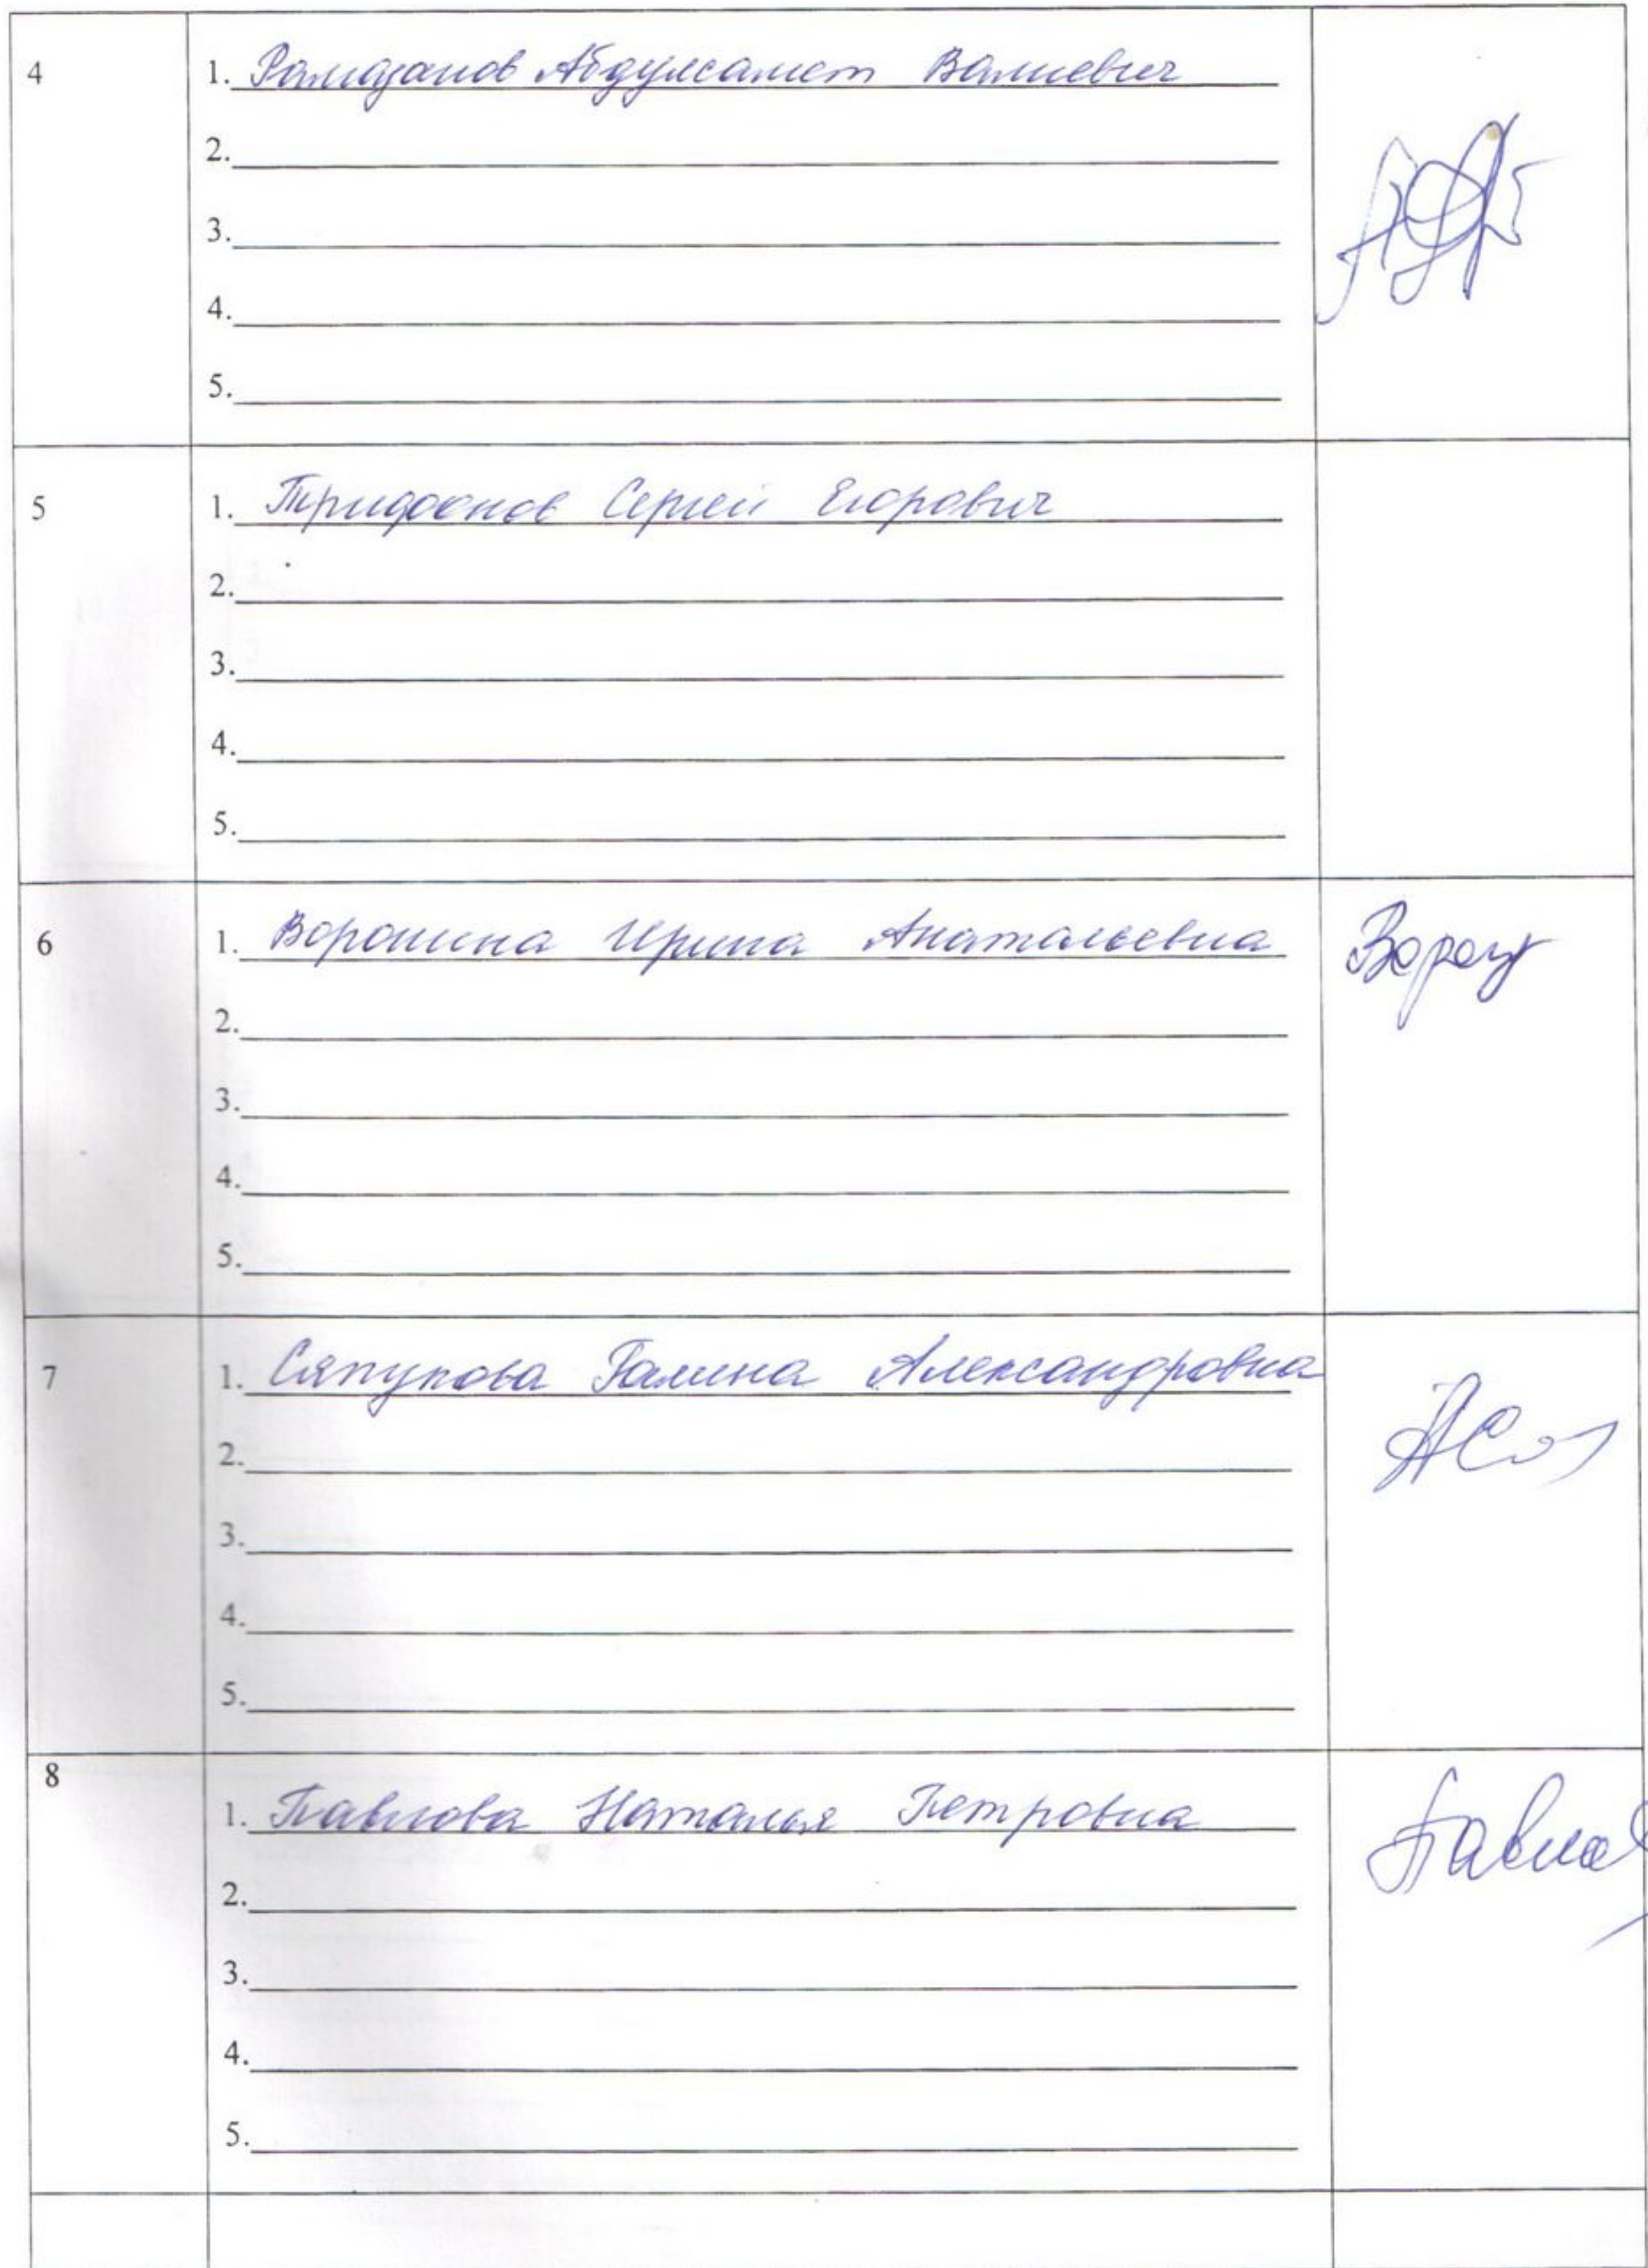 4
1. Рамазанов Абдулсамет Валиевич
2.
3.
4.
5.
5
1. Сергей Егорович
2.
3.
4.
5.
6
1. Воронина Ирина Анатальевна
2.
3.
4.
5.
7
1. Сяпукова Галина Александровна
2.
3.
4.
5.
8
1. Павлова Наталья Петровна
2.
3.
4.
5.